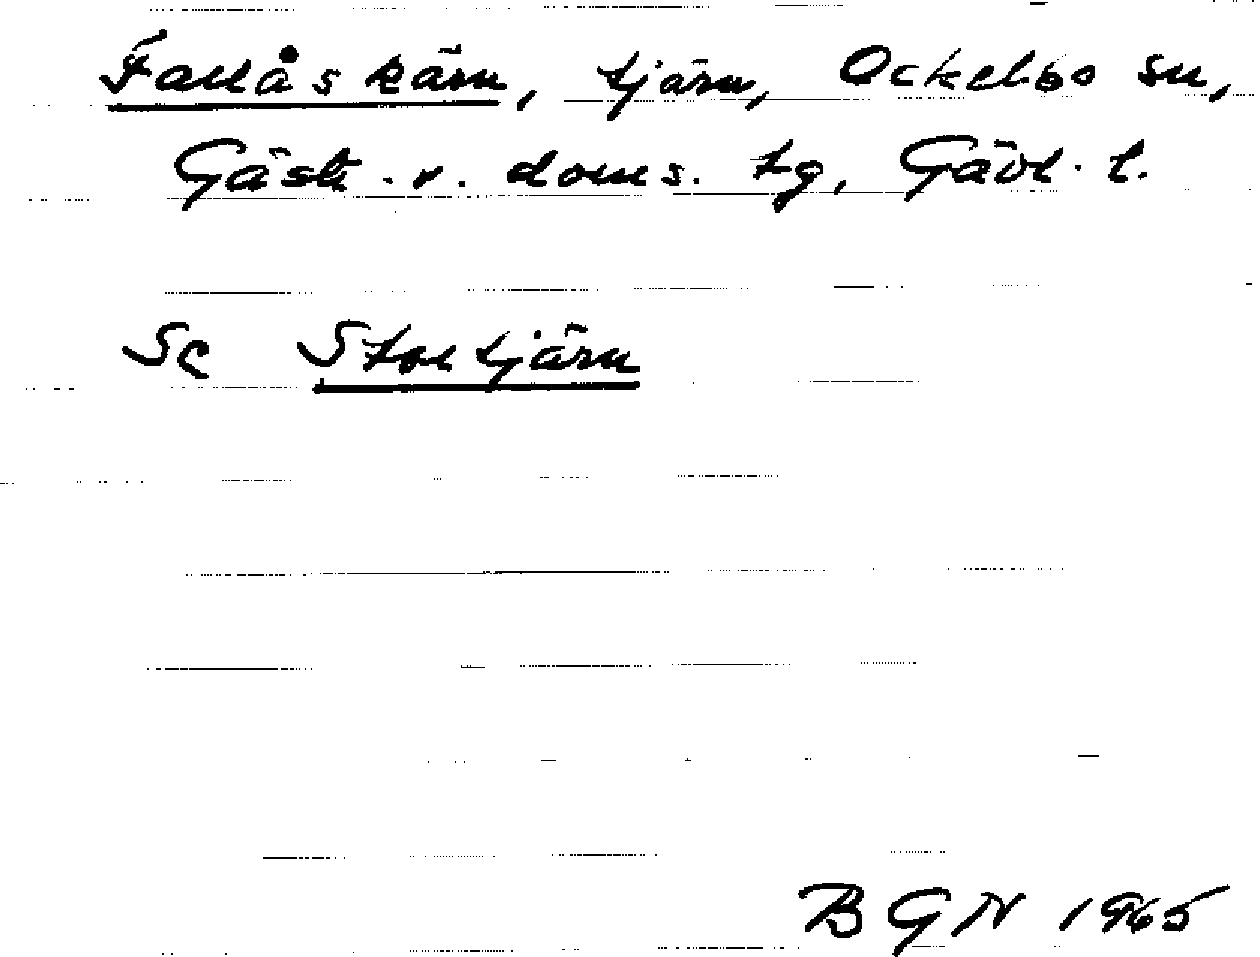 Fallåskärn, tjärn, Ockelbo sn,
Gästr. v. doms. tg, Gävl. l.
Se Stortjärn
BGN 1965